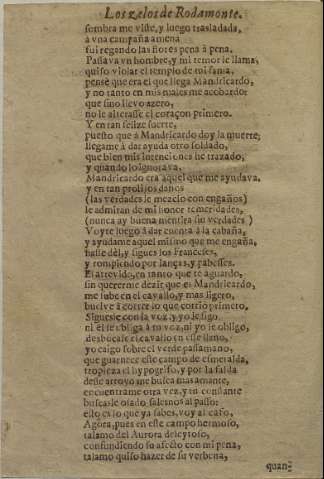 Los zelos de Rodamonte.
sombra me viste, y luego trasladada,
à vna campaña amena
fui regando las flores pena à pena.
Passava vn hombre, y mi temor le llama,
quiso violar el templo de mi fama,
pensè que era el que llega Mandricardo,
y no tanto en mis males me acobardo:
que sino llevo azero,
no le alterasse el coraçon primero.
Y en tan felize suerte,
puesto que à Mandricardo doy la muerte,
llegame à dar ayuda otro soldado,
que bien mis intenciones he trazado,
y quando lo ignorava.
Mandricardo era aquel que me ayudava,
y en tan prolijos daños
(las verdades le mezclo con engaños)
le admiran de mi honor temeridades,
(nunca ay buena mentira sin verdades)
Voyte luego à dar cuenta à la cabaña,
y ayudame aquel mismo que me engaña,
halle del, y sigues los Franceses,
y rompiendo por lanças, y paveses.
El atrevido, en tanto que te aguardo,
sin quererme dezir que es Mandricardo,
me sube en el cavallo, y mas ligero,
buelve à correr lo que corriò primero.
Siguese con la voz, y yo le sigo,
ni èl se obliga à tu voz, ni yo le obligo,
desbocase el cavallo en esse llano,
yo caigo sobre el verde passamano,
que guarnece este campo de esmeralda,
tropieza el hypogrifo, y por la falda
deste arroyo me busca mas amante,
encuentrame otra vez, y tu constante
buscasle osado, salesnos al passo:
ello es lo que ya sabes, voy al caso,
Agora, pues en este campo hermoso,
talamo del Aurora deleytoso,
confundiendo su afecto con mi pena,
talamo quiso hazer de su verbena,
quan-